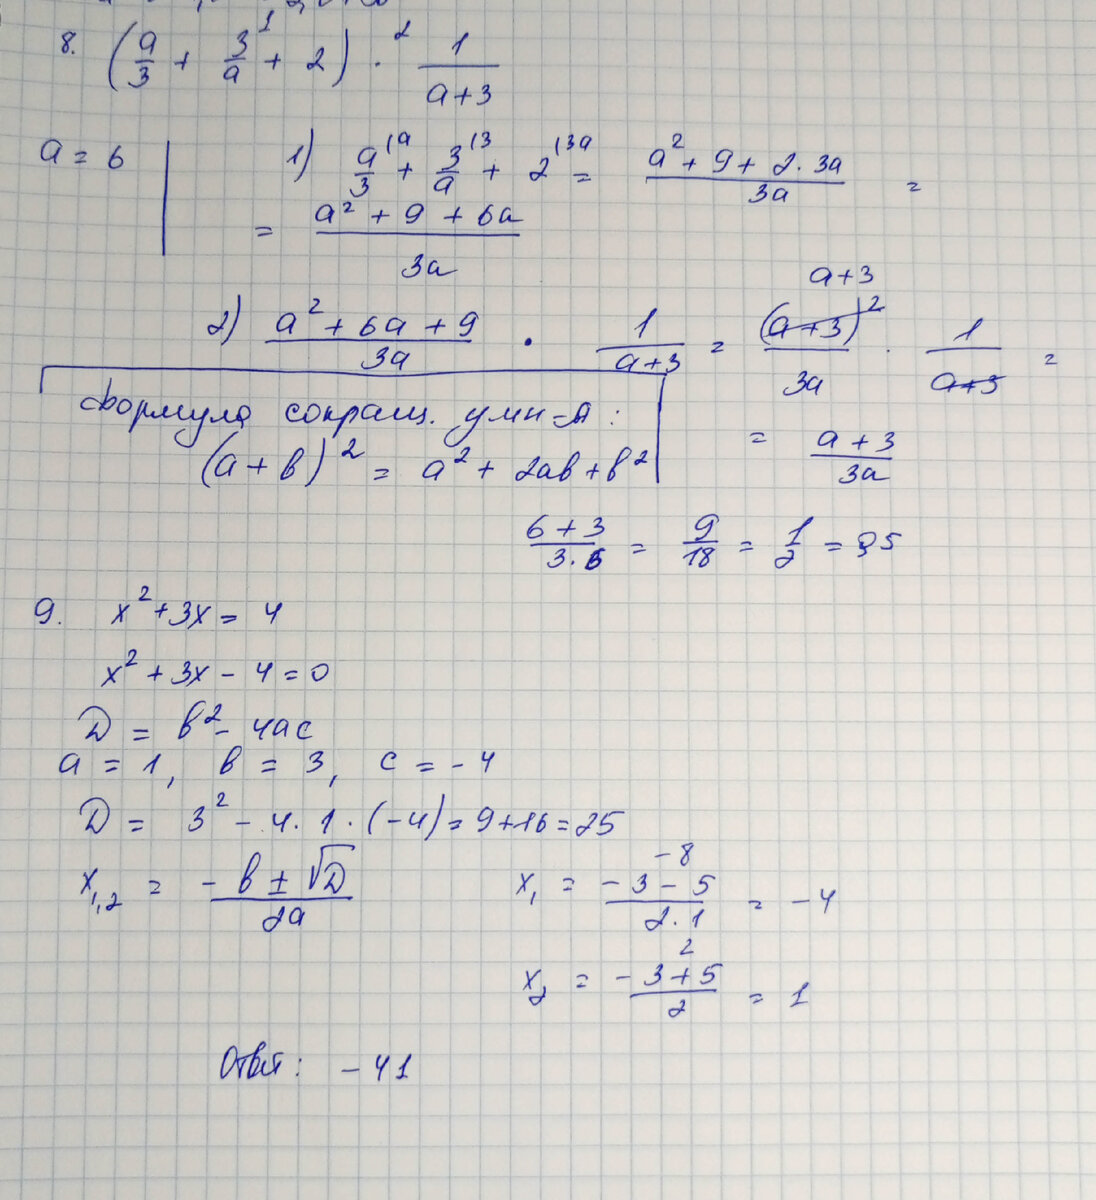 8. (a/3 + 3/a + 2)¹ ·² 1/(a+3)
a = 6
1) a/3^(a + 3/a^(3 + 2^(3a = (a² + 9 + 2·3a)/3a =
= (a² + 9 + 6a)/3a
a+3
2) (a² + 6a + 9)/3a · 1/(a+3) = (a+3)²/3a · 1/(a+3) =
Формула сокращ. умн-я:
(a + b)² = a² + 2ab + b²
= (a + 3)/3a
(6 + 3)/(3·6) = 9/18 = 1/2 = 0,5
9. x² + 3x = 4
x² + 3x - 4 = 0
D = b² - 4ac
a = 1, b = 3, c = -4
D = 3² - 4·1·(-4) = 9+16 = 25
x₁,₂ = (-b ± √D)/2a
-8
x₁ = (-3 - 5)/(2·1) = -4
2
x₂ = (-3 + 5)/2 = 1
Ответ: -41